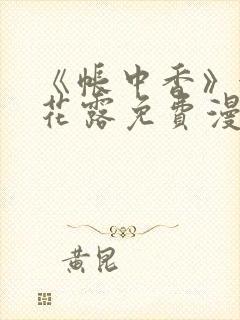 《帐中香》
花露免費漫
黄昆